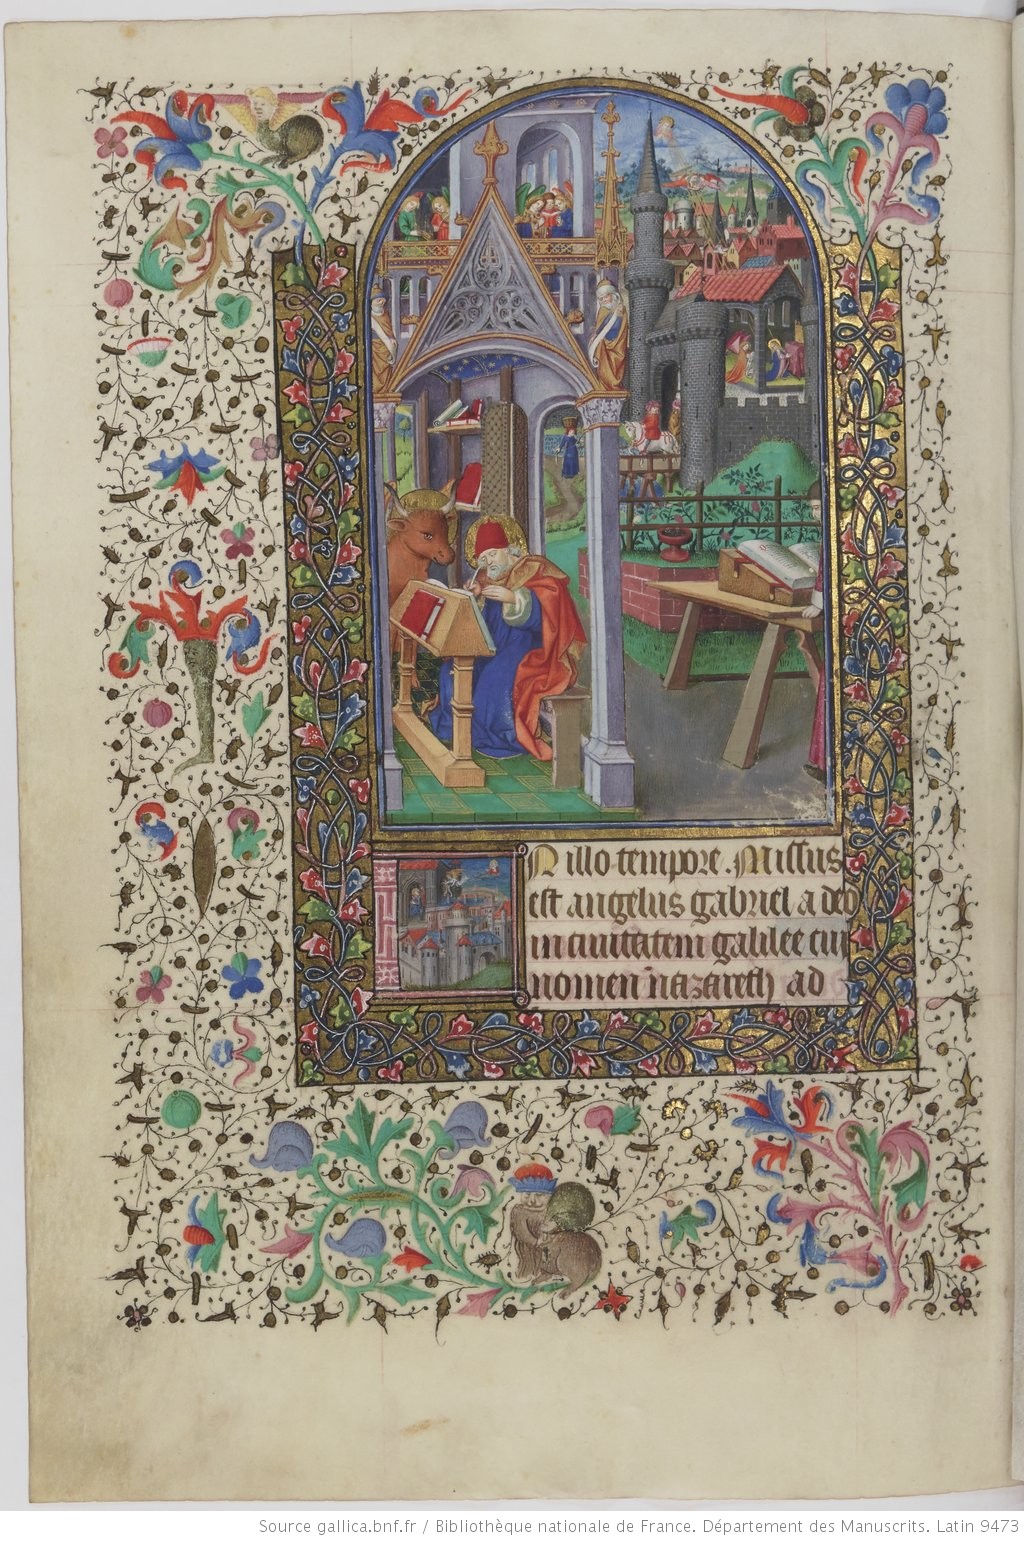 N illo tempore. Missus
est angelus gabriel a deo
in ciuitatem galilee cui
nomen nazareth ad
Source gallica.bnf.fr / Bibliothèque nationale de France. Département des Manuscrits. Latin 9473